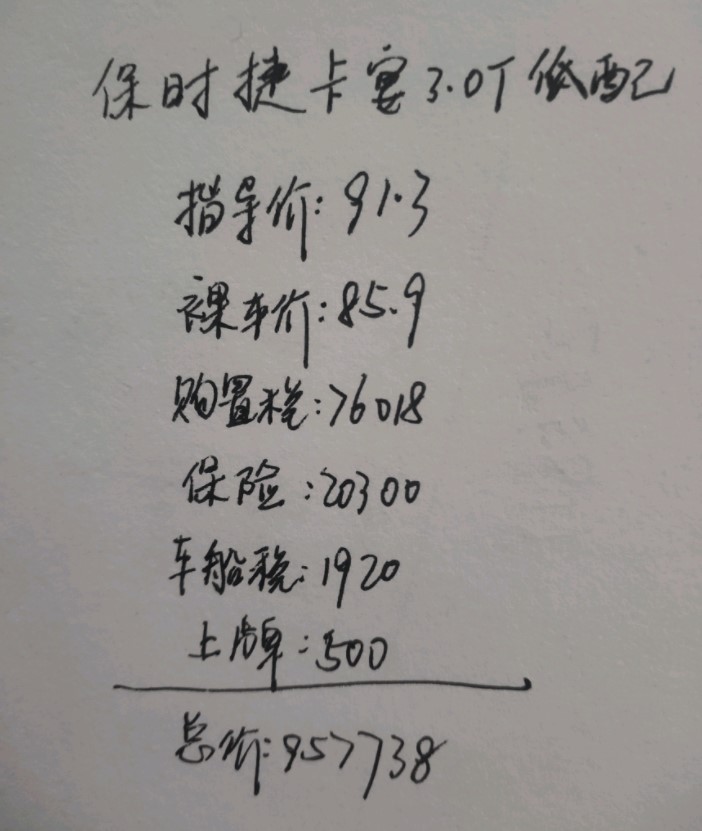 保时捷卡宴3.0T低配
指导价:91.3
裸车价:85.9
购置税:76018
保险:20300
车船税:1920
上牌:500
总价:957738